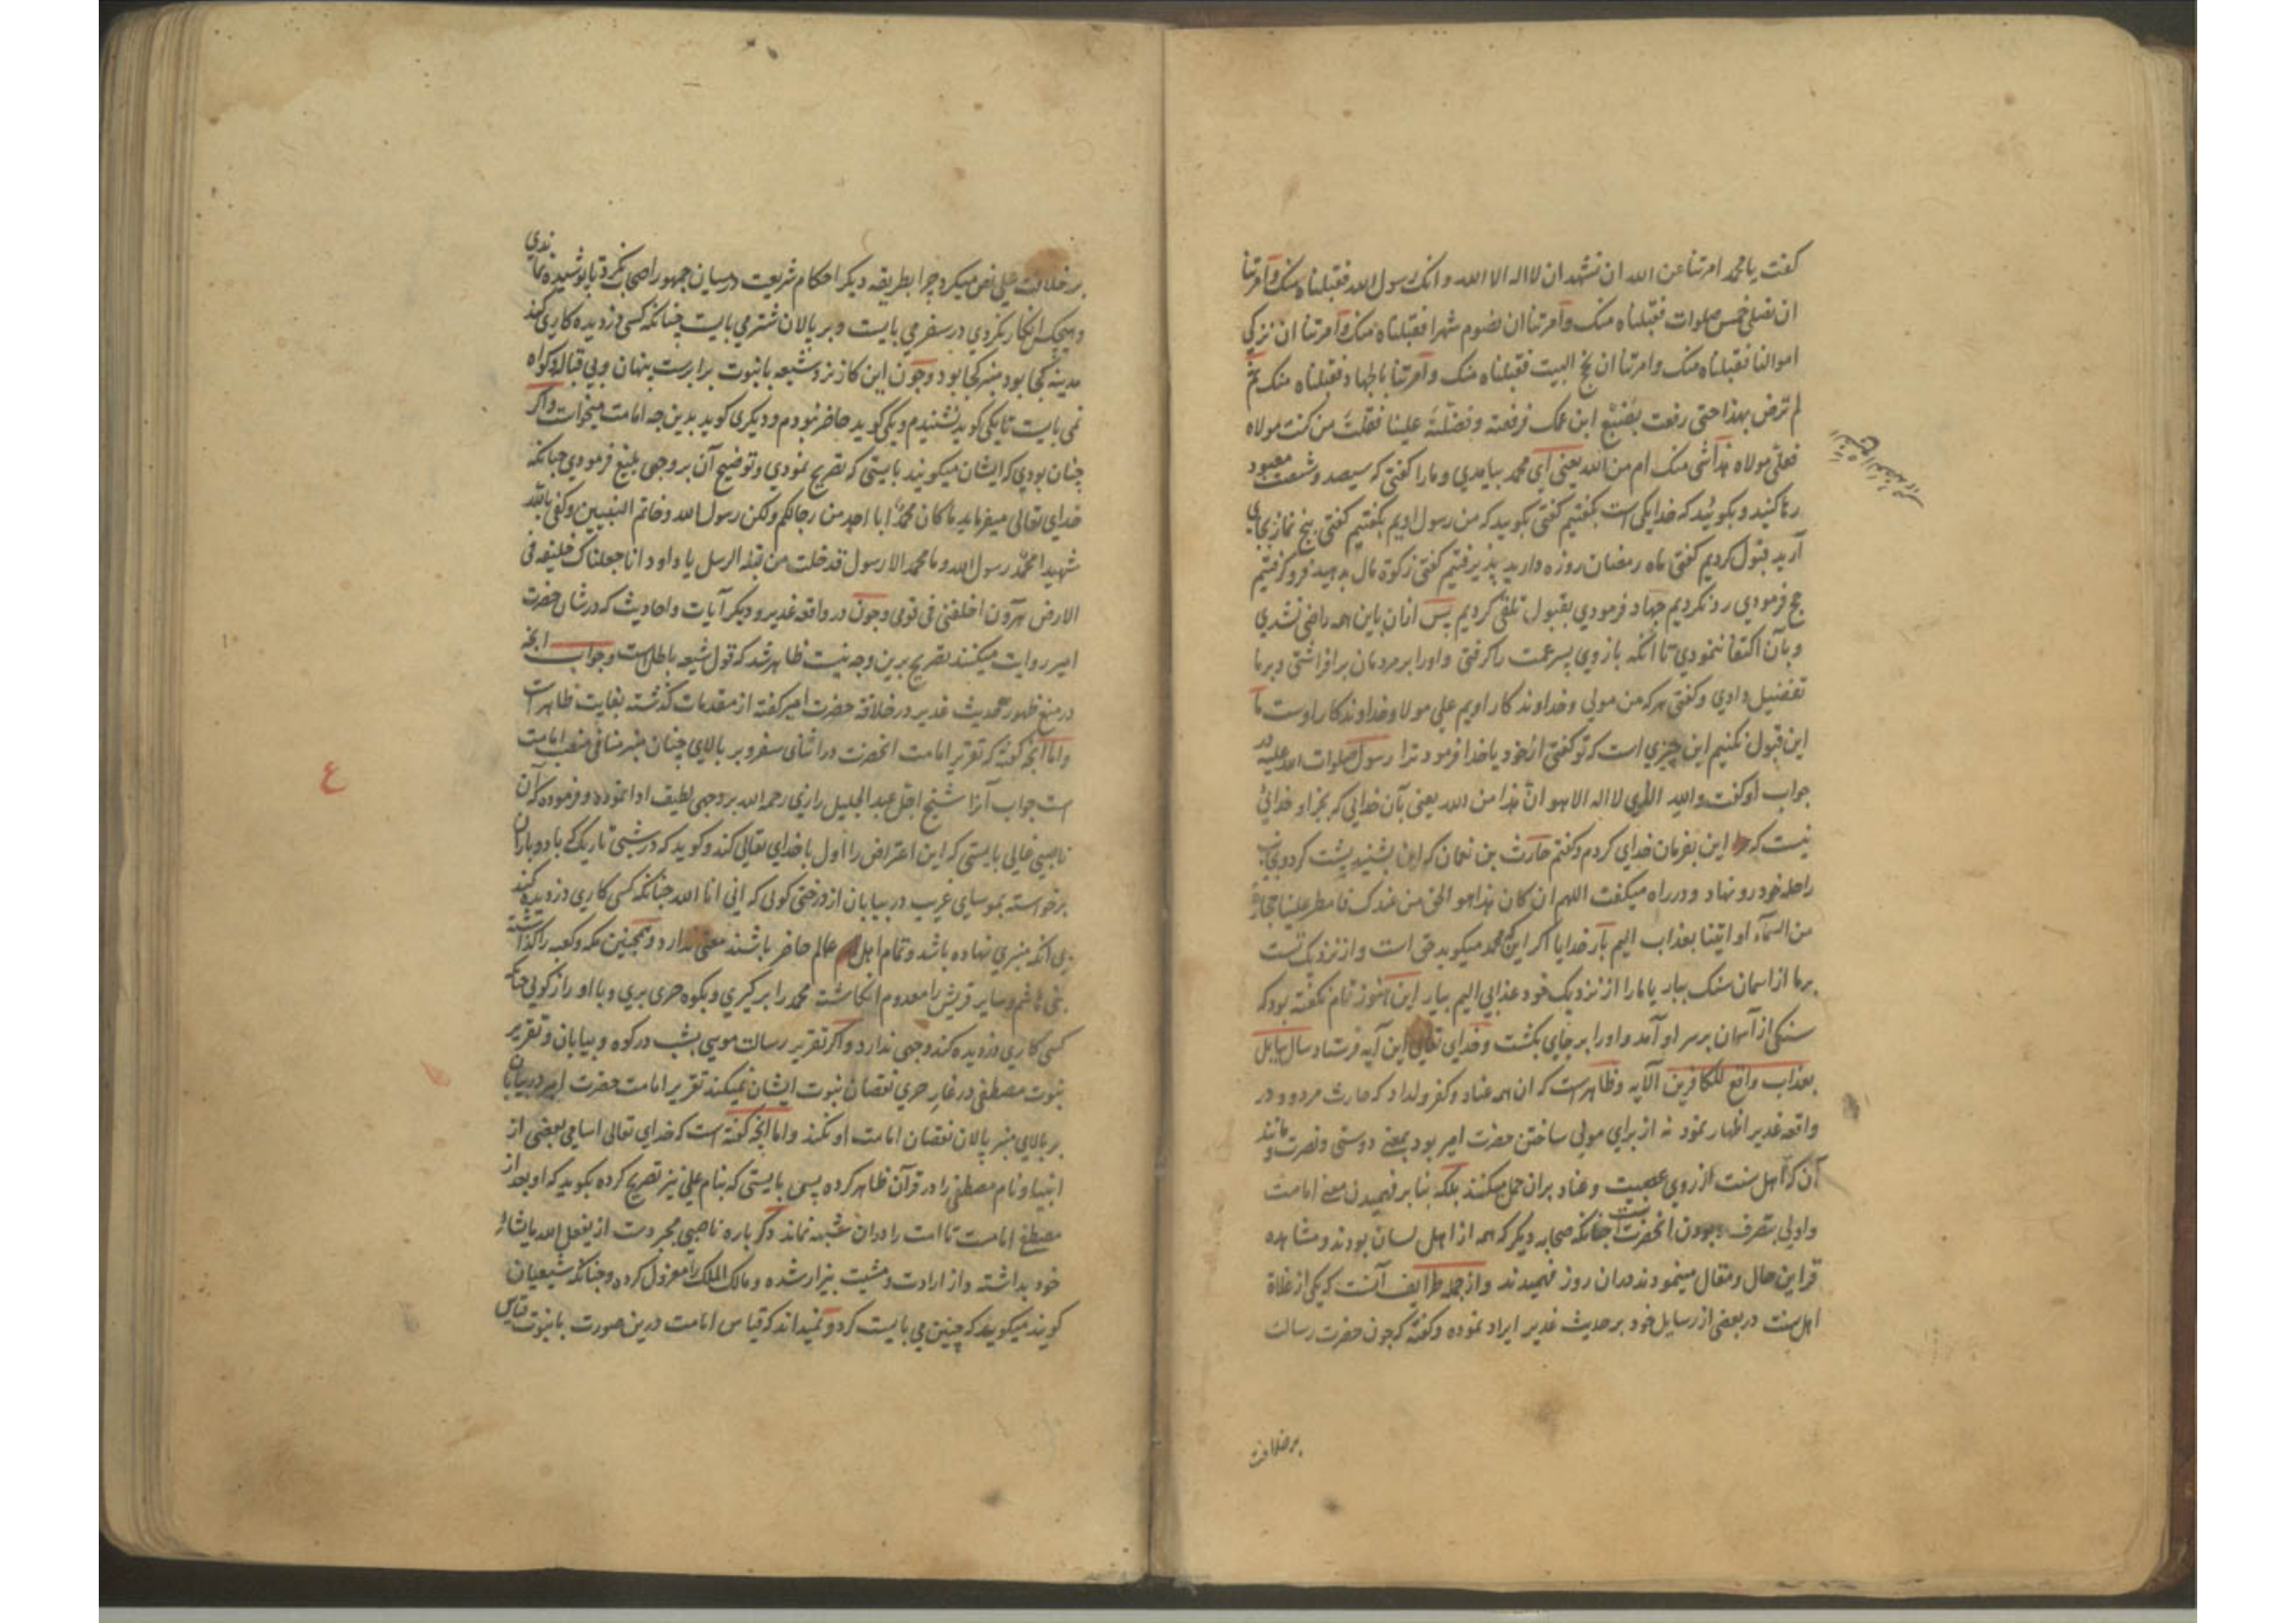 کفت یا محمد امرتنا عن الله ان نشهد ان لا اله الا الله و انک رسول الله فقبلناه منک و آمرتنا
ان نصلی خمس صلوات فقبلناه منک و آمرتنا ان نصوم شهرا فقبلناه منک و آمرتنا ان نزکی
اموالنا فقبلناه منک و امرتنا ان نحج البیت فقبلناه منک و آمرتنا بالجهاد فقبلناه منک ثم
لم ترض بهذا حتی رفعت بضبع ابن عمک فرفعته و فضلته علینا فقلت من کنت مولاه
فعلی مولاه هذا شی منک ام من الله یعنی ای محمد بیامدی و مارا کفتی که سیصد و شصت معبود
رها کنید و بکوئید که خدا یکی است بکفتیم کفتی بکویید که من رسول اویم بکفتیم کفتی پنج نماز بجای
آرید قبول کردیم کفتی ماه رمضان روزه دارید پذیرفتیم کفتی زکوة مال بدهید فرو کرفتیم
حج فرمودی رد نکردیم جهاد فرمودی بقبول تلقی کردیم پس ازان باین همه راضی نشدی
و بآن اکتفا ننمودی تا آنکه بازوی پسر عمت را کرفتی و اورا بر مردمان برافراشتی و بر ما
تفضیل دادی و کفتی هر که من مولی و خداوندکار اویم علی مولا و خداوندکار اوست ما
این قبول نکنیم این چیزی است که تو کفتی از خود یا خدا فرمود ترا رسول صلوات الله علیه در
جواب او کفت والله الذی لا اله الا هو ان هذا من الله یعنی بآن خدایی که بجز او خدائی
نیست که این بفرمان خدای کردم و کفتم حارث بن نعمان که این بشنید پشت کرد و بجانب
راحله خود رو نهاد و در راه میکفت اللهم ان کان هذا هو الحق من عندک فامطر علینا حجارة
من السماء او ائتنا بعذاب الیم بار خدایا اکر این که محمد میکوید حق است و از نزدیک تست
بر ما از اسمان سنک ببار یا مارا از نزدیک خود عذابی الیم بیار این هنوز تمام نکفته بود که
سنکی از آسمان بر سر او آمد و اورا بر جای بکشت و خدای تعالی این آیه فرستاد سال سایل
بعذاب واقع للکافرین الآیه و ظاهرست که ان همه عناد و کفر و لداد که حارث مردود در
واقعه غدیر اظهار نمود نه از برای مولی ساختن حضرت امیر بود بمعنی دوستی و نصرت و مانند
آن که اهل سنت از روی عصبیت و عناد بران حمل میکنند بلکه بنابر فهمیدن معنی امامت
و اولی بتصرف بودن آنحضرتست چنانکه صحابه دیکر که همه از اهل لسان بودند و مشاهده
قراین حال و مقال مینمودند دران روز فهمیدند و از جمله طرایف آنست که یکی از غلاة
اهل سنت در بعضی از رسایل خود بر حدیث غدیر ایراد نموده و کفته که چون حضرت رسالت
بر خلافت
بر خلافت علی نص میکرد چرا بطریقه دیکر احکام شریعت در میان جمهور اصحاب نکرد تا پوشیده نماندی
و هیچکس انکار نکردی در سفر می بایست و بر پالان شتر می بایست چنانکه کسی دزدیده کاری کند
مدینه کجا بود منبر کجا بود و چون این کار نزد شیعه با نبوت برابرست پنهان و بی قباله و کواه
نمی بایست تا یکی کوید نشنیدم و یکی کوید حاضر نبودم و دیکری کوید بدین چه امامت میخواست و اکر
چنان بودی که ایشان میکویند بایستی که تصریح نمودی و توضیح آن بر وجهی بلیغ فرمودی چنانکه
خدای تعالی میفرماید ما کان محمد ابا احد من رجالکم ولکن رسول الله و خاتم النبیین و کفی بالله
شهیدا محمد رسول الله و ما محمد الا رسول قد خلت من قبله الرسل یا داود انا جعلناک خلیفه فی
الارض هرون اخلفنی فی قومی و چون در واقعه غدیر و دیکر آیات و احادیث که در شان حضرت
امیر روایت میکنند تصریح برین وجه نیست ظاهر شد که قول شیعه باطل است و جواب انچه
در منع ظهور حدیث غدیر در خلافة حضرت امیر کفته از مقدمات کذشته بغایت ظاهر است
و اما آنچه کفته که تقریر امامت انحضرت در اثنای سفر و بر بالای چنان منبر منافی منصب امامت
است جواب آنرا شیخ اجل عبد الجلیل رازی رحمه الله بر وجهی لطیف ادا نموده و فرموده که آن
ناصبی غالی بایستی که این اعتراض را اول با خدای تعالی کند و کوید که در شبی تاریک با باد و باران
برخواسته بموسای غریب در بیابان از درختی کوئی که انی انا الله چنانکه کسی کاری دزدیده کند
بی انکه منبری نهاده باشد و تمام اهل عالم حاضر باشند معنی ندارد و همچنین مکه و کعبه را کذاشته
بنی هاشم و سایر قریش را معدوم انکاشته محمد را بر کیری و بکوه حری بری و با او راز کویی چنانکه
کسی کاری دزدیده کند وجهی ندارد و اکر تقریر رسالت موسی بشب در کوه و بیابان و تقریر
نبوت مصطفی در غار حری نقصان نبوت ایشان نمیکند تقریر امامت حضرت امیر در بیابان
بر بالای منبر پالان نقصان امامت او نکند و اما آنچه کفته است که خدای تعالی اسامی بعضی از
انبیا و نام مصطفی را در قرآن ظاهر کرده پس بایستی که بنام علی نیز تصریح کرده بکوید که او بعد از
مصطفی امامست تا امت را دران شبهه نماند دکر باره ناصبی مجبر دست از یفعل الله ما یشاء
خود بداشته و از ارادت و مشیت بیزار شده و مالک الملک را معزول کرده و چنانکه شیعیان
کویند میکوید که چنین می بایست کرد و نمیداند که قیاس امامت درین صورت با نبوت قیاس